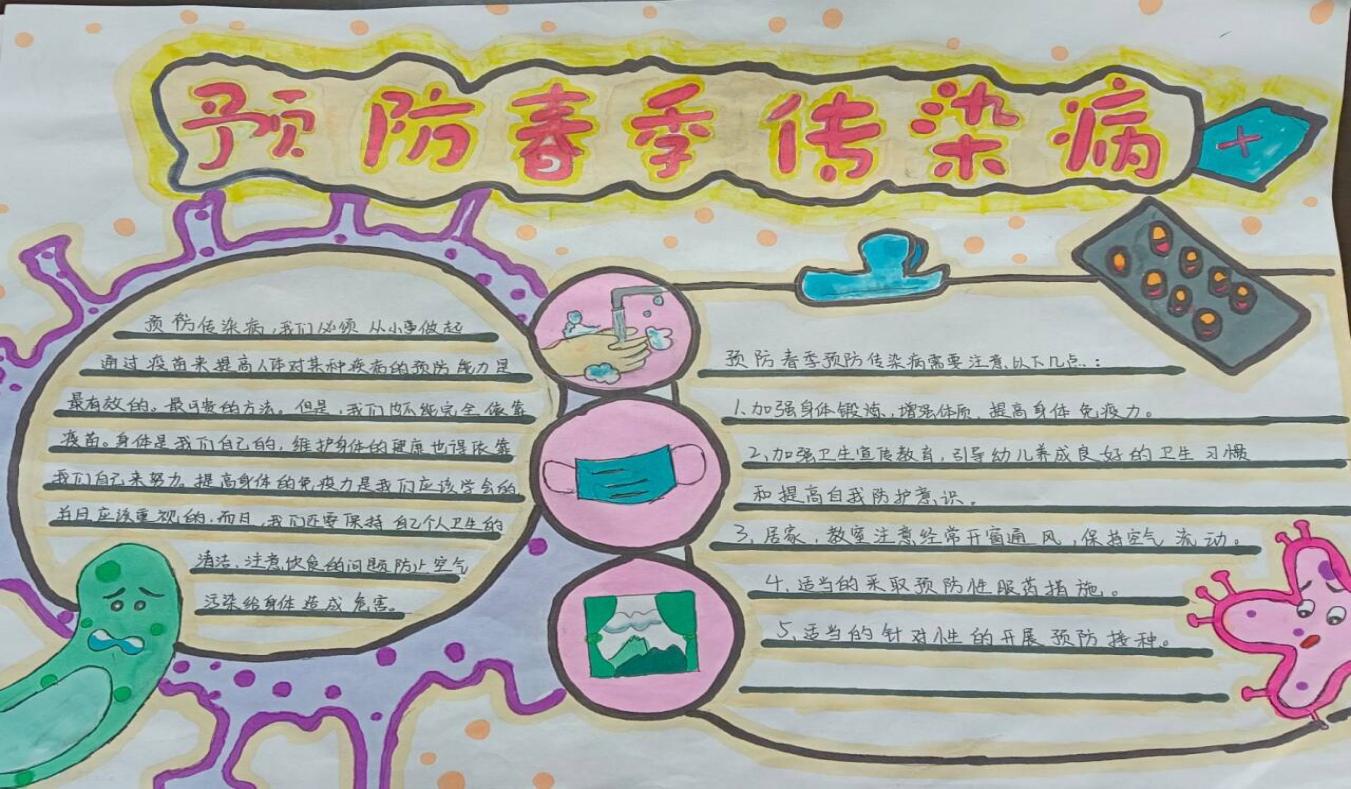 预防春季传染病
预防传染病,我们必须从小事做起
通过疫苗来提高人体对某种疾病的预防能力是
最有效的。最可靠的方法。但是,我们也不能完全依靠
疫苗。身体是我们自己的,维护身体的健康也得依靠
我们自己来努力。提高身体的免疫力是我们应该学会的
并且应该重视的。而且,我们还要保持自己个人卫生的
清洁、注意饮食的问题防止空气
污染给身体造成危害。
预防春季预防传染病需要注意以下几点.:
1、加强身体锻炼,增强体质、提高身体免疫力。
2、加强卫生宣传教育,引导幼儿养成良好的卫生习惯
和提高自我防护意识。
3、居家、教室注意经常开窗通风,保持空气流动。
4、适当的采取预防性服药措施。
5、适当的针对性的开展预防接种。